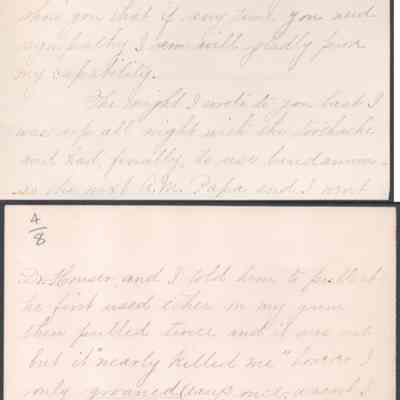 show you that if any time you need
sympathy I will gladly prove
my capability.
The night I wrote to you last I
was up all night with the toothache
and had finally to use laudanum
so the next A.M. Papa and I went
4/8
Dr. Houser and I told him to pull it
he first used ether in my gum
then pulled twice and it was out
but it "nearly killed me" I
only groaned once, wasn't I